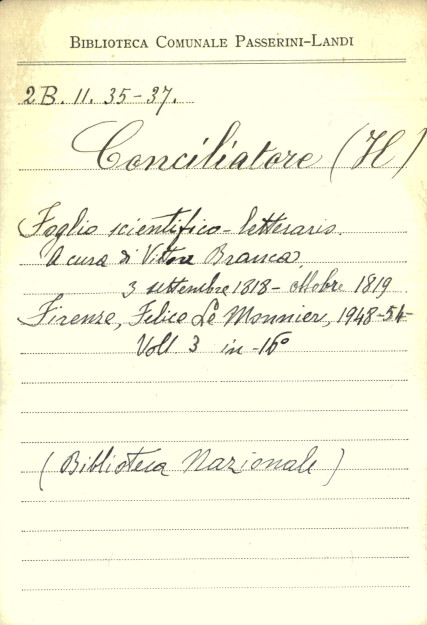 BIBLIOTECA COMUNALE PASSERINI-LANDI
2B. 11. 35-37.
Conciliatore (Il)
Foglio scientifico-letterario.
A cura di Vittore Branca.
3 settembre 1818 - ottobre 1819
Firenze, Felice Le Monnier, 1948-54-
Voll. 3 in -16°
(Biblioteca Nazionale)